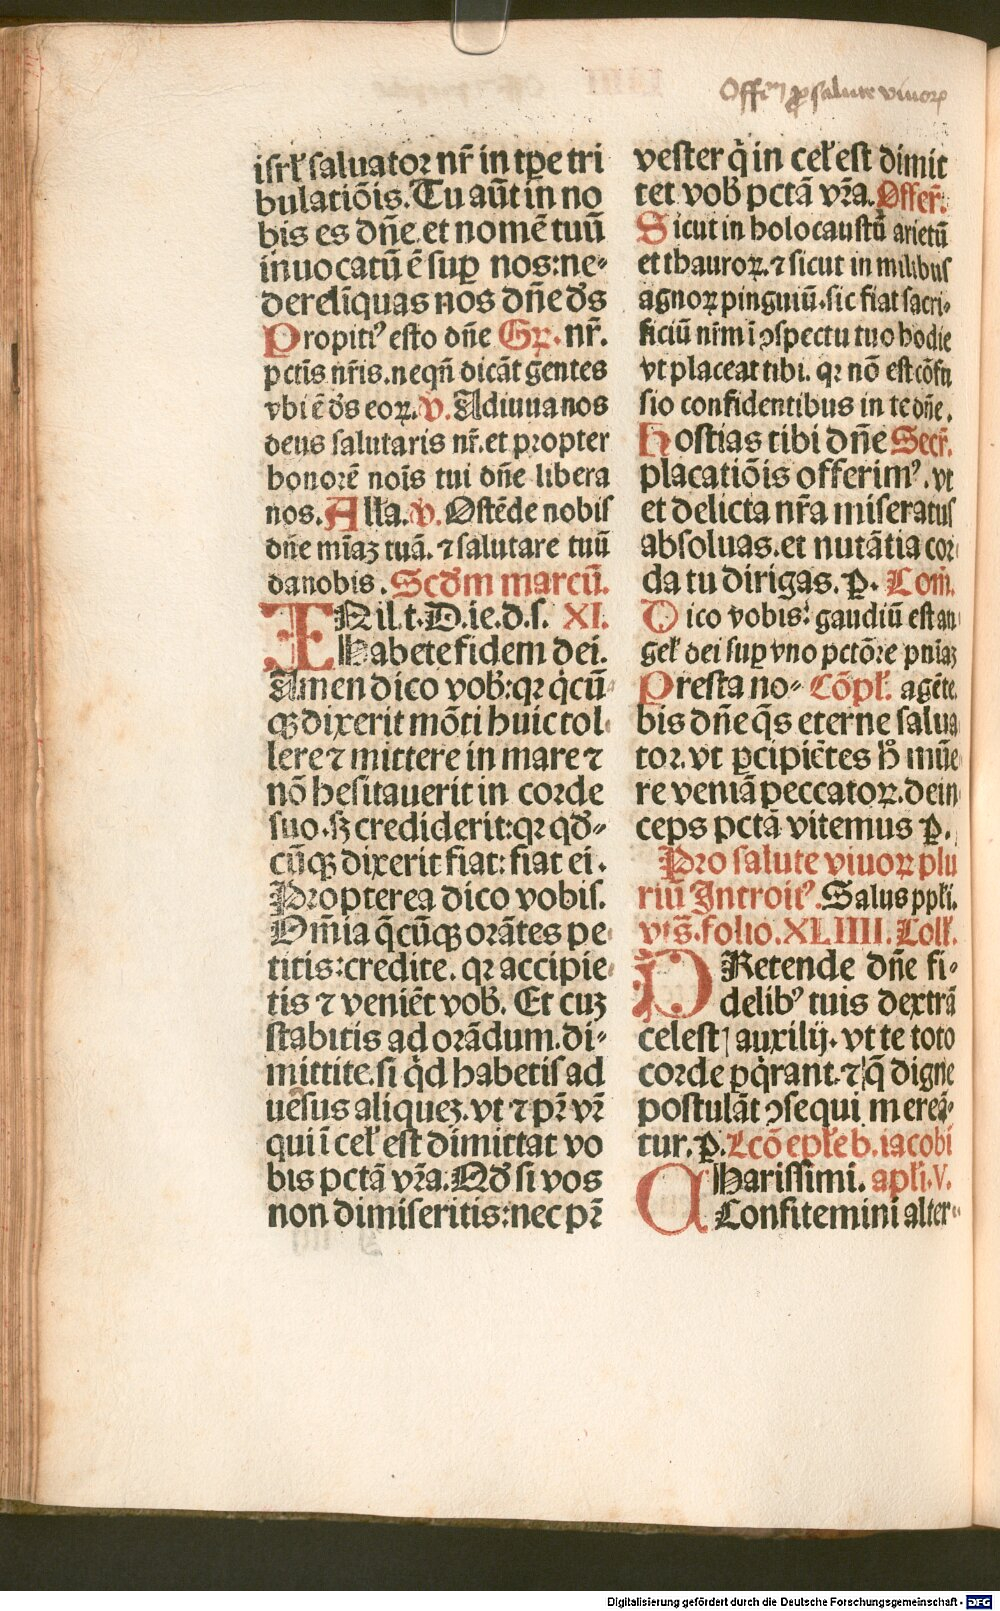 Offm̄ ꝓ salute viuoꝝ
isrł saluator nr̄ in tꝑe tri
bulatiōis. Tu aūt in no
bis es dn̄e. et nomē tuū
inuocatū ē suꝑ nos: ne⸗
derelīquas nos dn̄e ds̄
Propitiꝰ esto dn̄e Gꝝ. nr̄.
pctīs nr̄is. neqn̄ dicāt gentes
vbi ē ds̄ eoꝝ. v. Adiuua nos
deus salutaris nr̄. et propter
honorē noīs tui dn̄e libera
nos. Alla. v. Ostēde nobis
dn̄e mīaꝫ tuā. ⁊ salutare tuū
da nobis. Scd̄m marcū.
IN il. t. D. ie. d. s. XI.
Habete fidem dei.
Amen dico vob̄: qꝛ qͥcū⸗
qꝫ dixerit mōti huic tol⸗
lere ⁊ mittere in mare ⁊
nō hesitauerit in corde
suo. sꝫ crediderit: qꝛ qd̄⸗
cūqꝫ dixerit fiat: fiat ei.
Propterea dico vobis.
Om̄ia q̄cūqꝫ orātes pe⸗
titis: credite. qꝛ accipie⸗
tis ⁊ veniēt vob̄. Et cuꝫ
stabitis ad orādum. di⸗
mittite. si qͥd habetis ad
uēsus aliqueꝫ. vt ⁊ pr̄ vr̄
qui ī cel̄ est dimittat vo
bis pctā vr̄a. Qd̄ si vos
non dimiseritis: nec pr̄
vester qͥ in cel̄ est dimit
tet vob̄ pctā vr̄a. Offer̄.
Sicut in holocaustū arietū
et thauroꝝ. ⁊ sicut in milibus
agnoꝝ pinguiū. sic fiat sacri⸗
ficiū nr̄m ī ꝯspectu tuo hodie
vt placeat tibi. qꝛ nō est cōfu
sio confidentibus in te dn̄e.
Hostias tibi dn̄e Secr̄.
placatiōis offerimꝰ. vt
et delicta nr̄a miseratus
absoluas. et nutātia cor⸗
da tu dirigas. P. Com̄.
Dico vobis: gaudiū est an
gel̄ dei suꝑ vno pctōre pn̄iaꝫ
Presta no⸗ Cōpł. agēte.
bis dn̄e q̄s eterne salua
tor. vt ꝑcipiētes hͦ mūe
re veniā peccatoꝝ. dein
ceps pctā vitemus P.
Pro salute viuoꝝ plu
riū Introitꝰ. Salus ppłi.
vt s̄. folio. XLIIII. Coll̄.
PRetende dn̄e fi⸗
delibꝰ tuis dextrā
celestꝭ auxilij. vt te toto
corde ꝑqͥrant. ⁊ q̄ digne
postulāt ꝯsequi mereā⸗
tur. P. Lcō epłe b. iacobi
CHarissimi. apłi. V.
Confitemini alter⸗
Digitalisierung gefördert durch die Deutsche Forschungsgemeinschaft - DFG